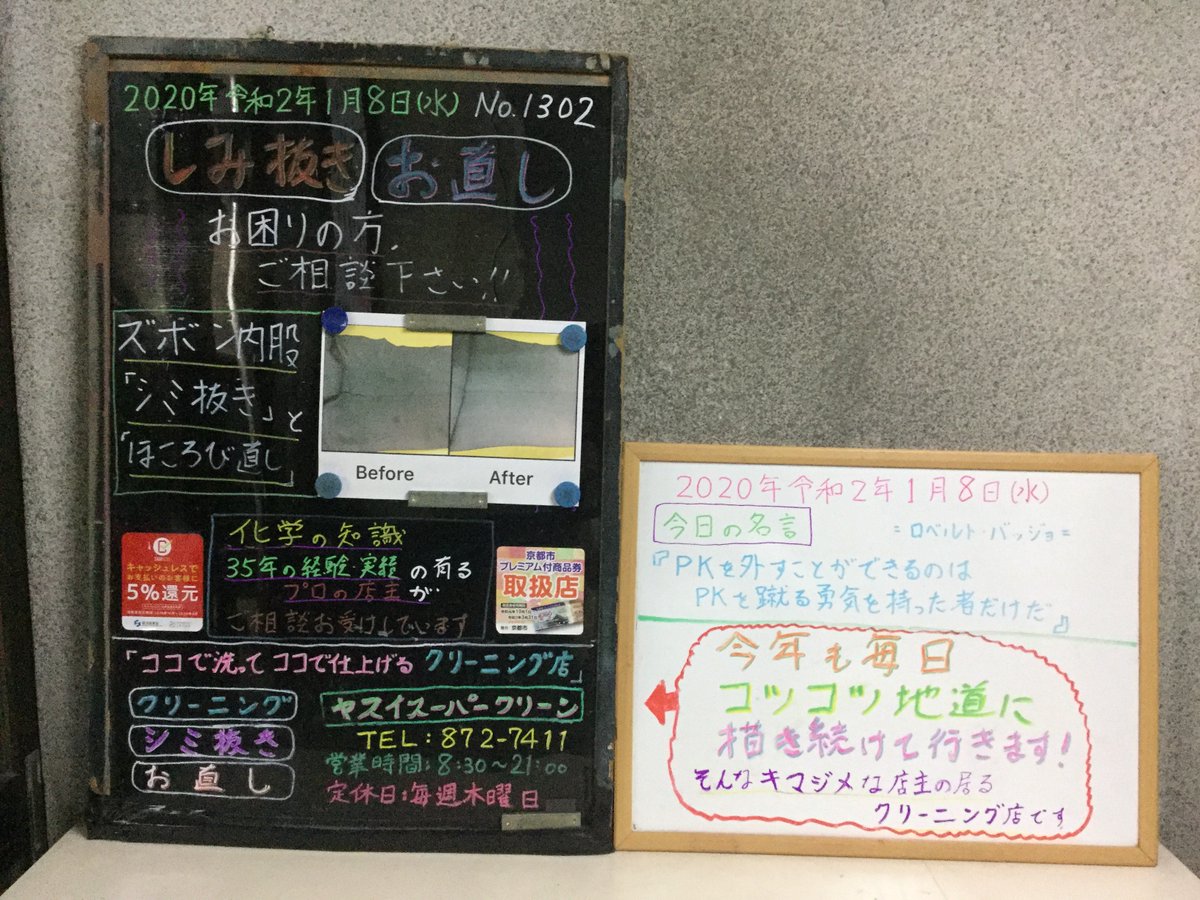 2020年令和2年1月8日(水) No.1302
しみ抜き お直し
お困りの方、
ご相談下さい!!
ズボン内股
「シミ抜き」と
「ほころび直し」
Before After
化学の知識
35年の経験・実績の有る
プロの店主が
ご相談お受けしています
キャッシュレスで
お支払いのお客様に
5%還元
京都市
プレミアム付商品券
取扱店
京都市
「ココで洗ってココで仕上げるクリーニング店」
クリーニング
シミ抜き
お直し
ヤスイスーパークリーン
TEL:872-7411
営業時間:8:30~21:00
定休日:毎週木曜日
2020年令和2年1月8日(水)
今日の名言
=ロベルト・バッジョ=
『PKを外すことができるのは
PKを蹴る勇気を持った者だけだ』
今年も毎日
コツコツ地道に
描き続けて行きます!
そんなキマジメな店主の居る
クリーニング店です